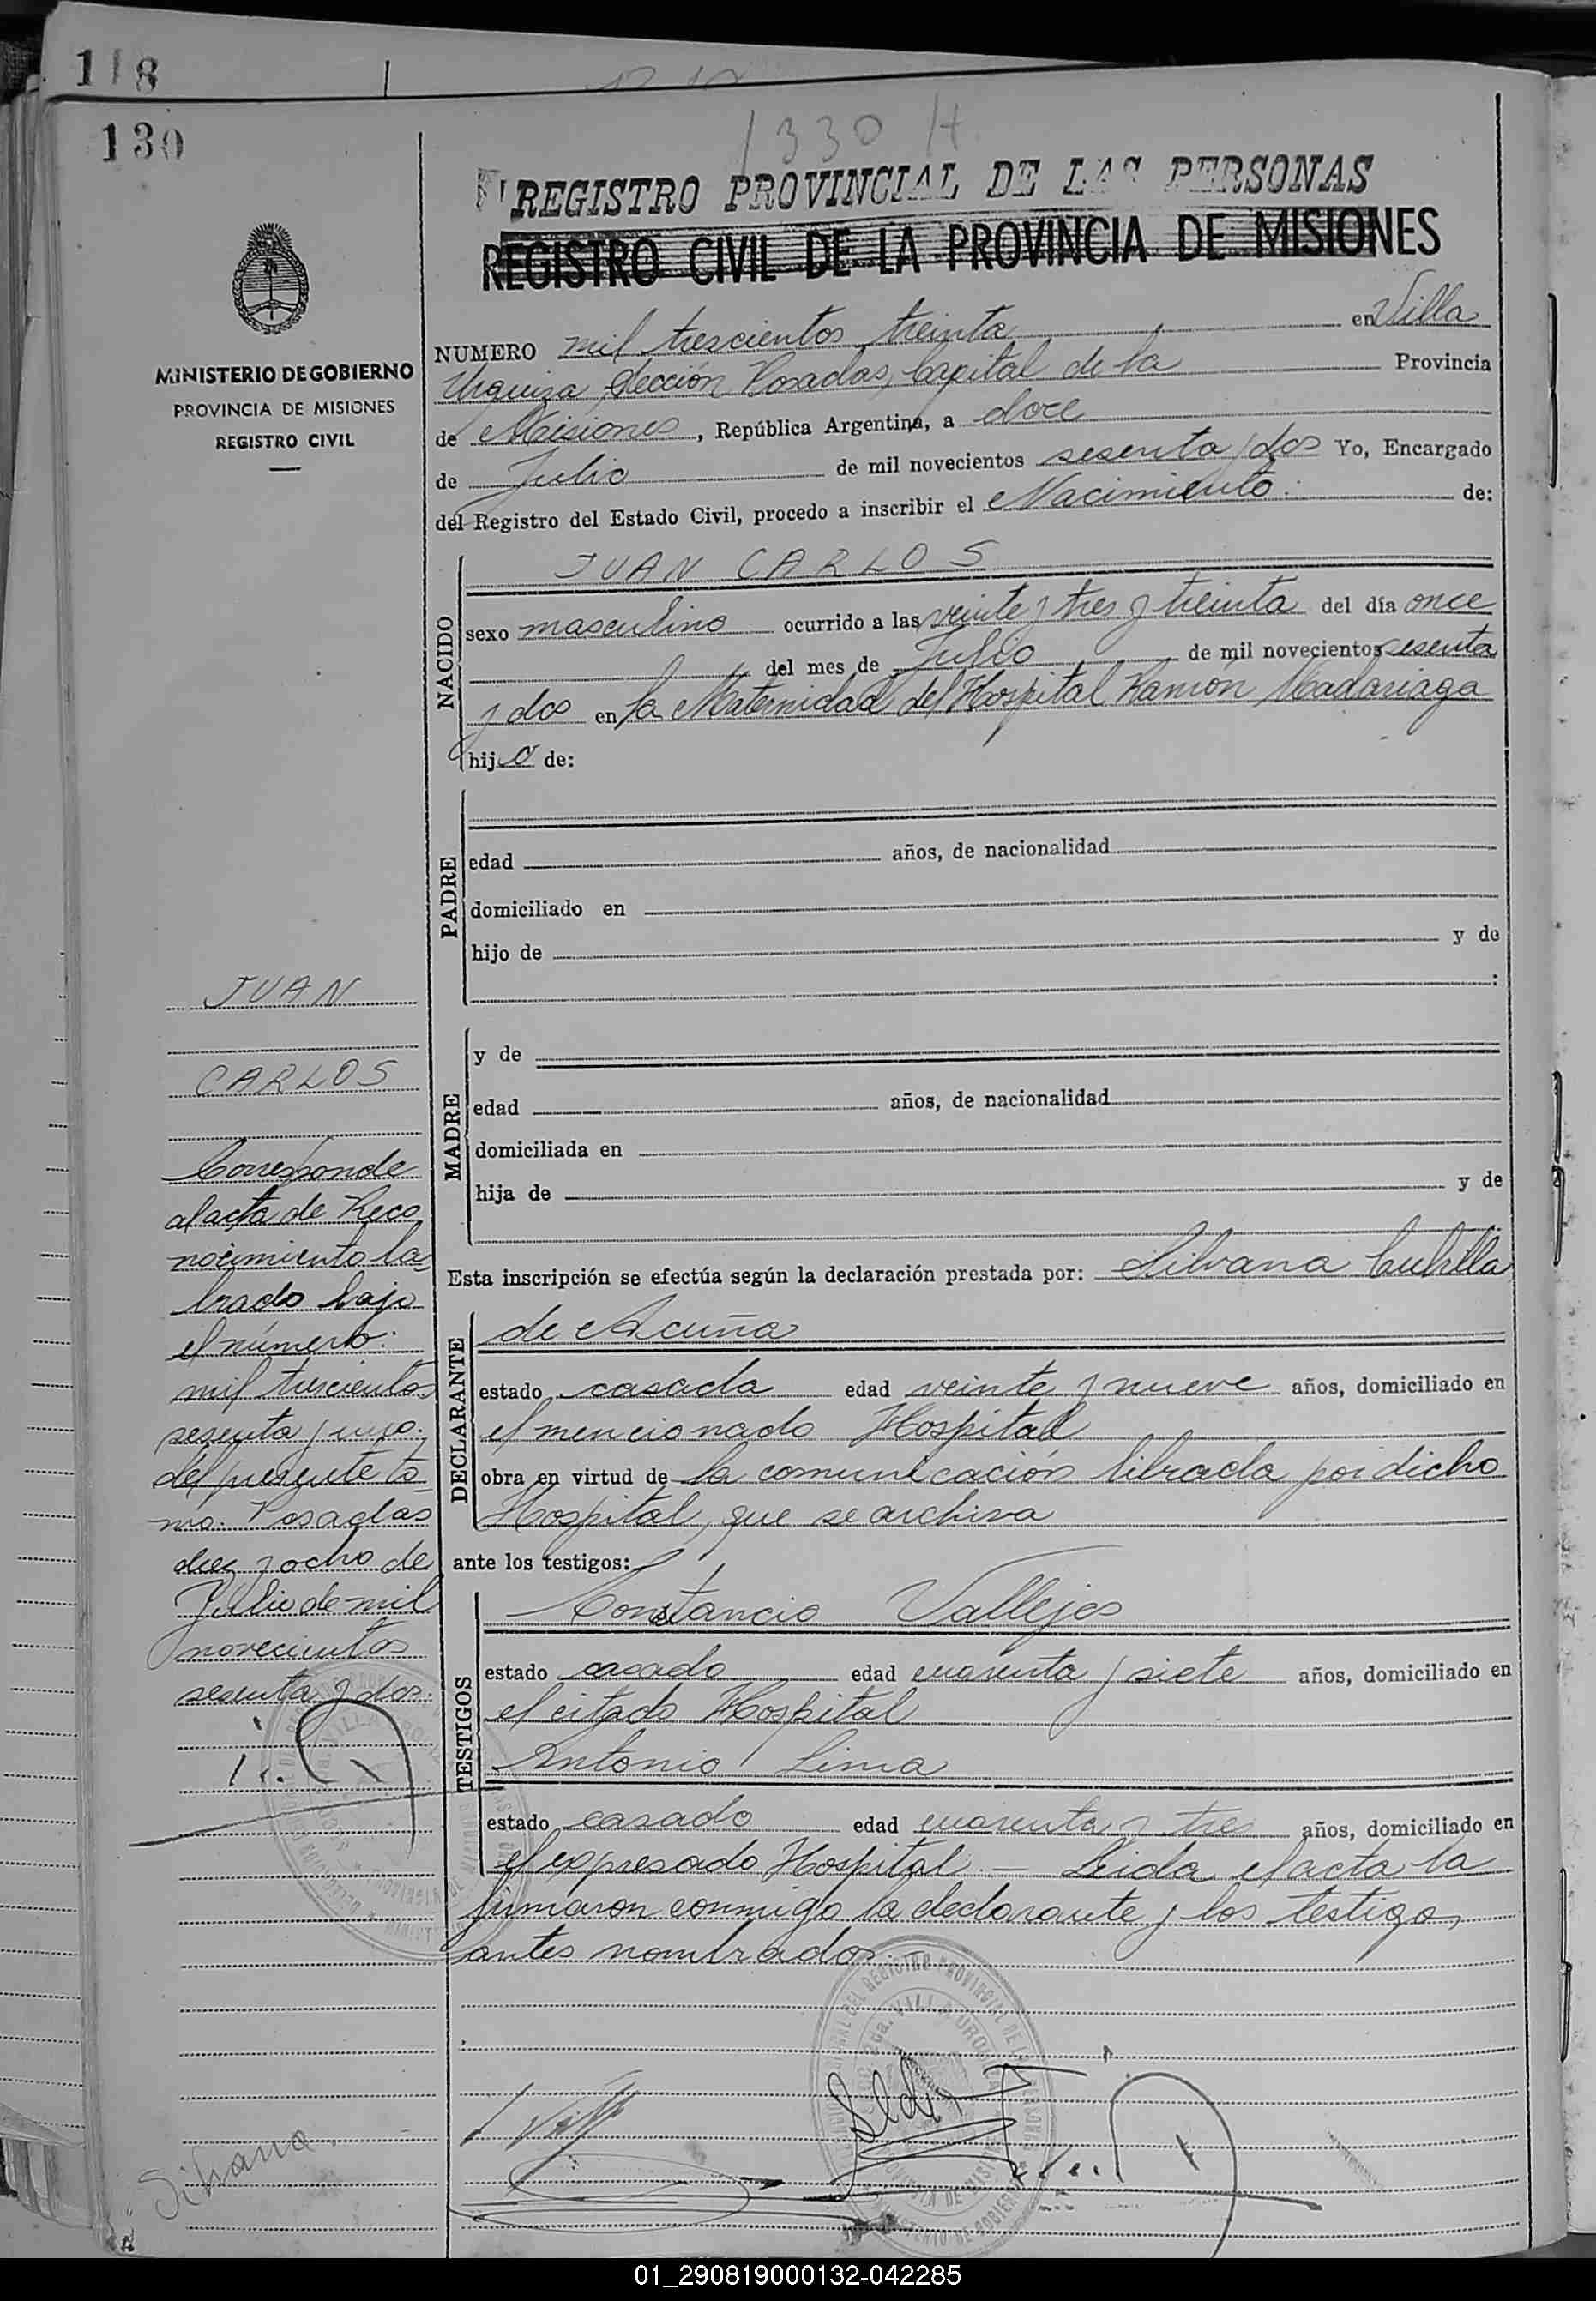 118
130
1330 H
REGISTRO PROVINCIAL DE LAS PERSONAS
REGISTRO CIVIL DE LA PROVINCIA DE MISIONES
MINISTERIO DE GOBIERNO
PROVINCIA DE MISIONES
REGISTRO CIVIL
NUMERO mil trescientos treinta en Villa
Urquiza, Sección Posadas, Capital de la Provincia
de Misiones, República Argentina, a doce
de Julio de mil novecientos sesenta y dos Yo, Encargado
del Registro del Estado Civil, procedo a inscribir el Nacimiento. de:
NACIDO
JUAN CARLOS
sexo masculino ocurrido a las veinte y tres y treinta del día once
del mes de Julio de mil novecientos sesenta
y dos en la Maternidad del Hospital Ramón Madariaga
hijo de:
PADRE
edad años, de nacionalidad
domiciliado en
hijo de y de
:
MADRE
y de
edad años, de nacionalidad
domiciliada en
hija de y de
Esta inscripción se efectúa según la declaración prestada por: Silvana Cubilla
DECLARANTE
de Acuña
estado casada edad veinte y nueve años, domiciliado en
el mencionado Hospital
obra en virtud de la comunicación librada por dicho
Hospital, que se archiva
ante los testigos:
TESTIGOS
Constancio Vallejos
estado casado edad cuarenta y siete años, domiciliado en
el citado Hospital
Antonio Lima
estado casado edad cuarenta y tres años, domiciliado en
el expresado Hospital. — Leida el acta la
firmaron conmigo la declarante y los testigos,
antes nombrados.
JUAN
CARLOS
Corresponde
al acta de Reco
nocimiento la-
brado bajo
el número:
mil trescientos
sesenta y uno.
del presente to-
mo. Posadas
diez y ocho de
Julio de mil
novecientos
sesenta y dos.
Silvana
01_290819000132-042285